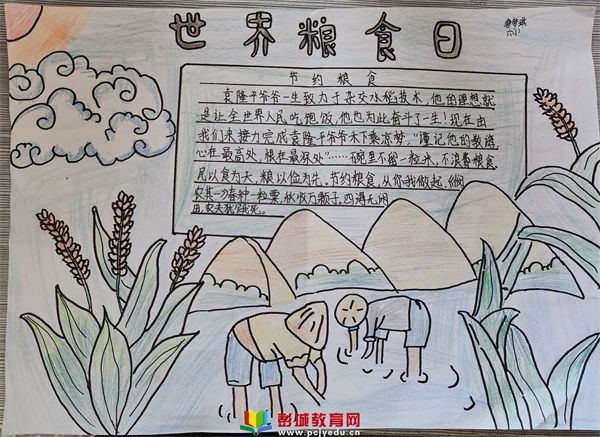 世界粮食日
六(1)
节约粮食
袁隆平爷爷一生致力于杂交水稻技术,他的理想就
是让全世界人民吃饱饭,他也为此奋斗了一生!现在由
我们来接力完成袁隆平爷爷禾下乘凉梦,“谨记他的教诲
心在最高处,根在最深处”……碗里不留一粒米,不浪费粮食
民以食为天,粮以俭为先,节约粮食,从你我做起,《悯
农其一》春种一粒粟,秋收万颗子,四海无闲
田,农夫犹饿死。
彭城教育网
www.pcjyedu.cn